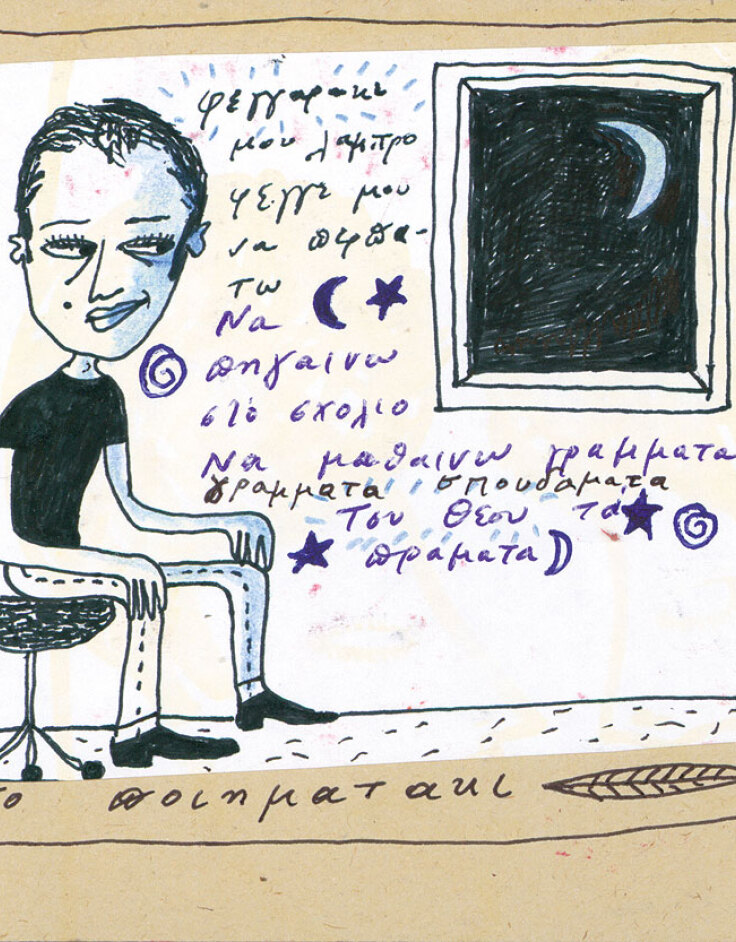 φεγγαρακι
μου λαμπρο
φεγγε μου
να περπα-
τω
Να
πηγαινω
στο σχολιο
Να μαθαινω γραμματα
γραμματα σπουδαματα
Του Θεου τα
πραματα
το ποιηματακι